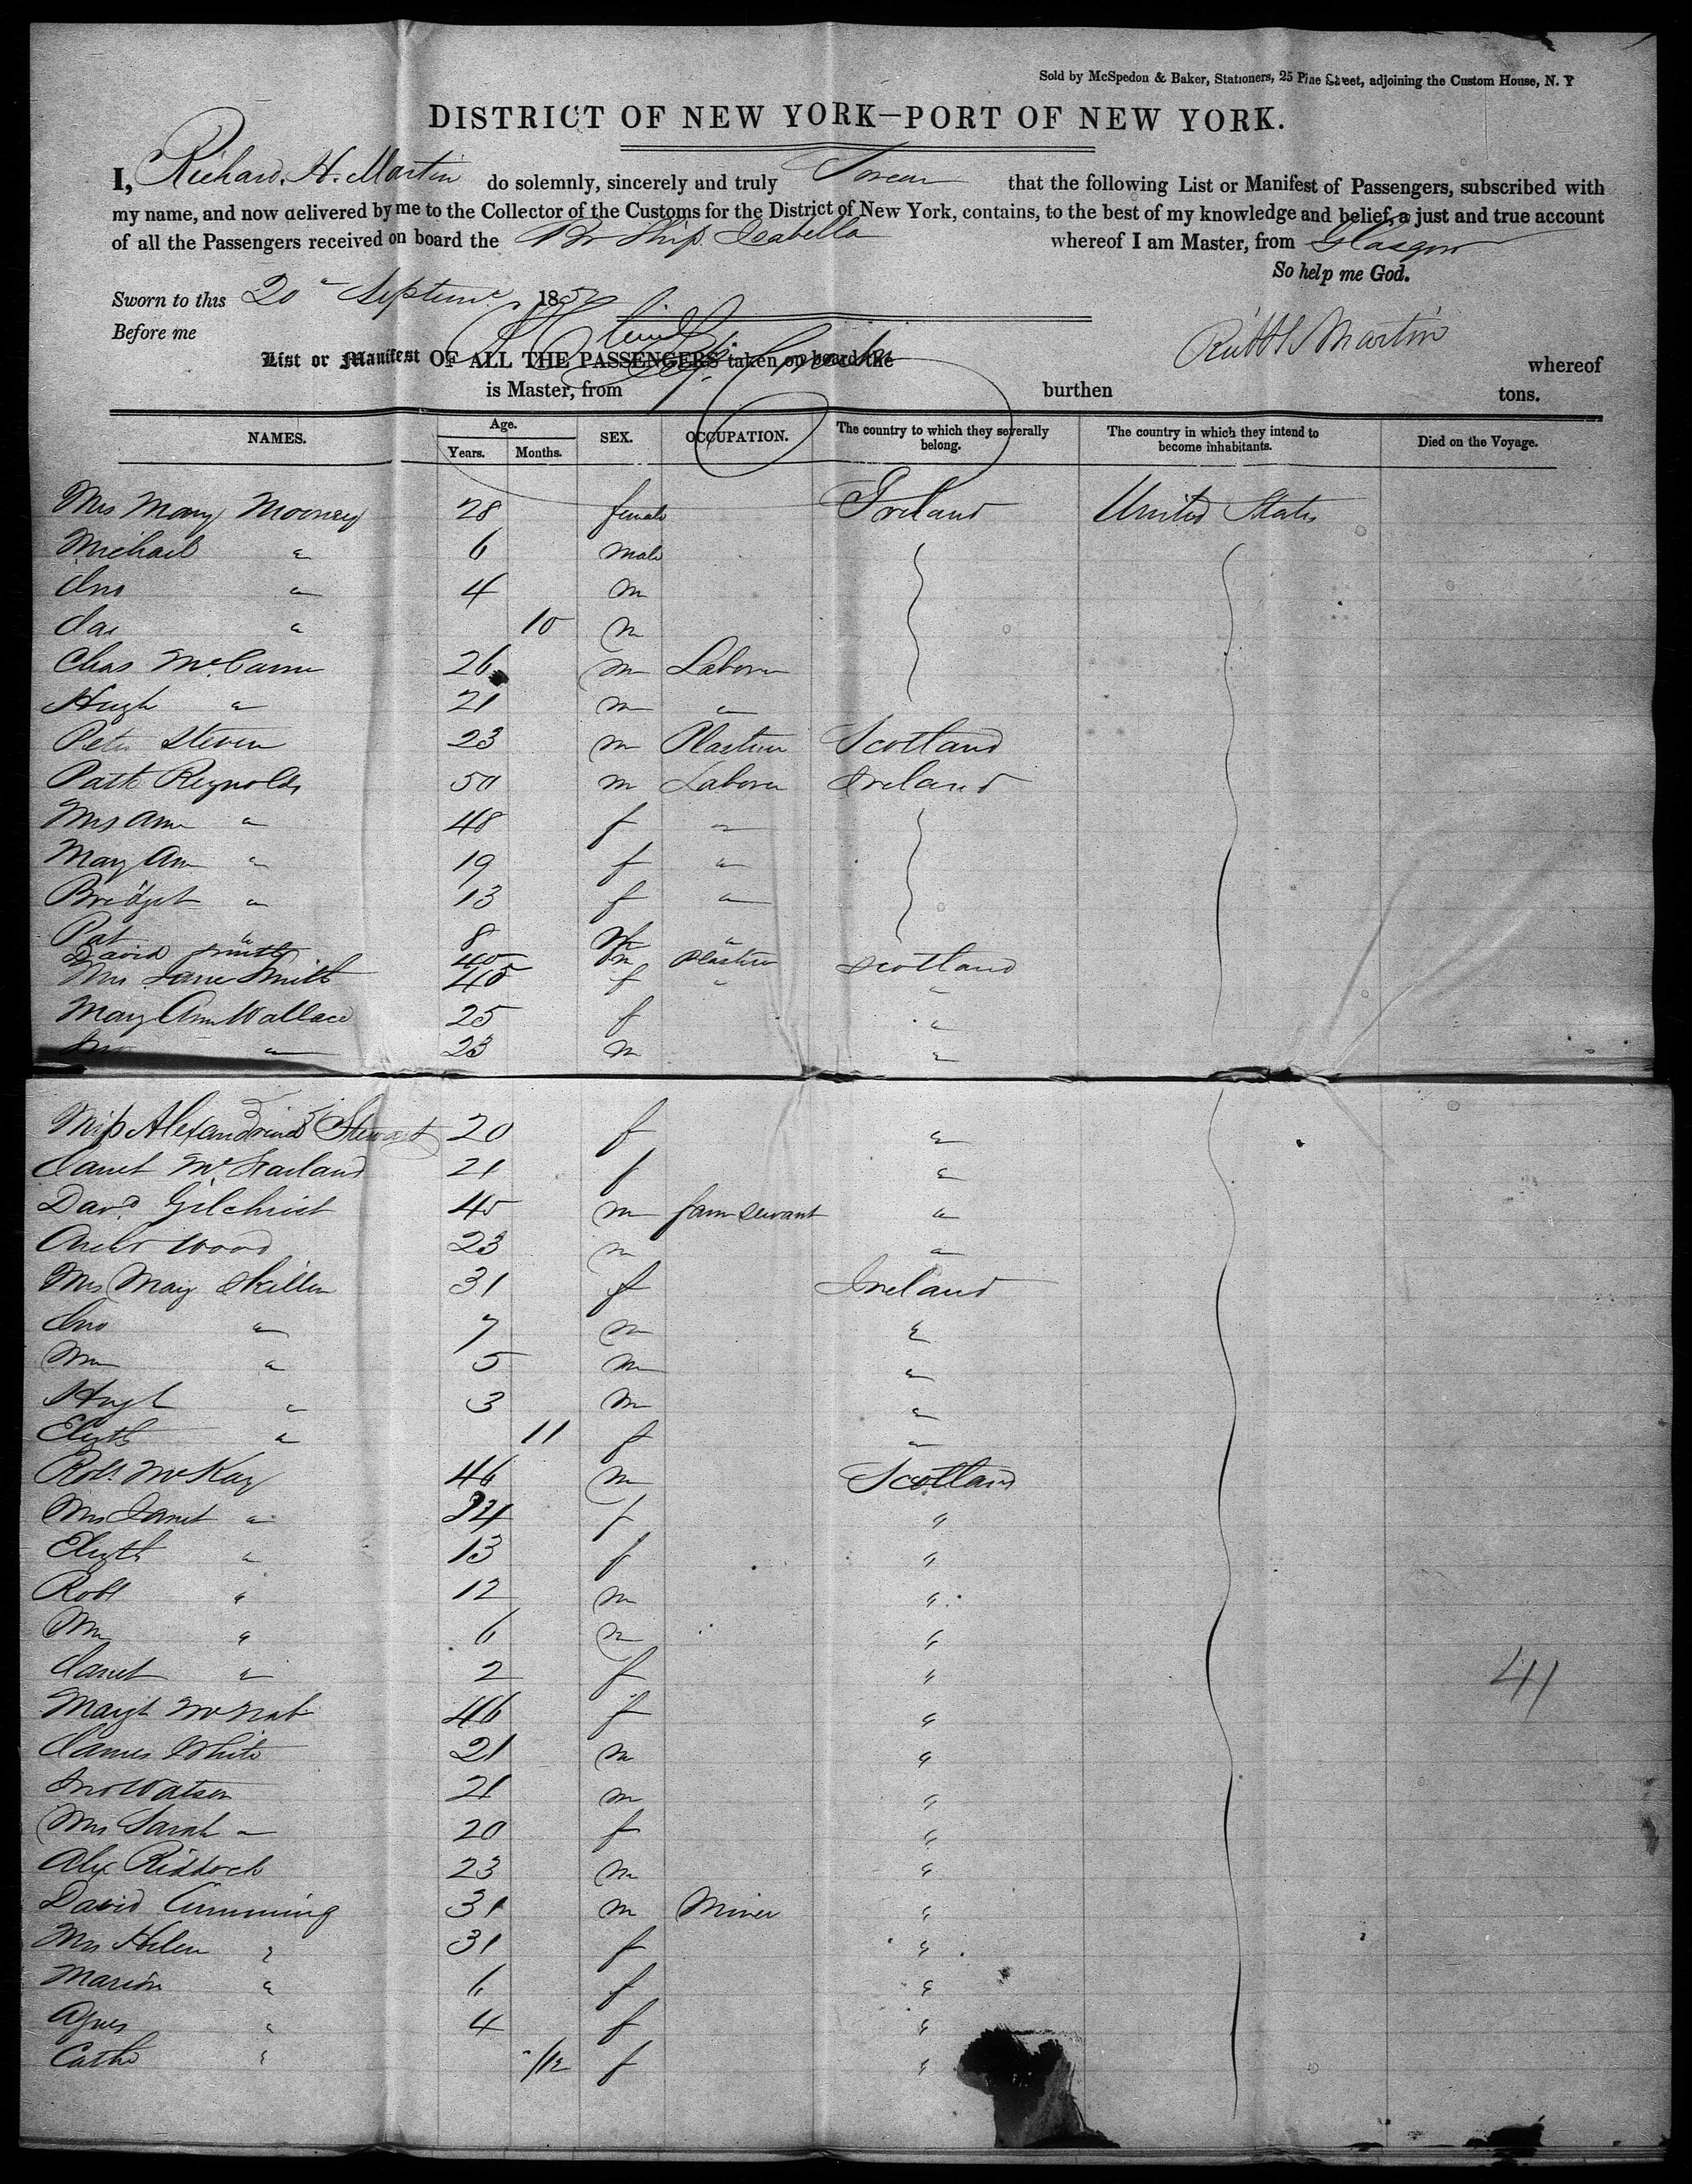 Sold by McSpedon & Baker, Stationers, 25 Pine Street, adjoining the Custom House, N. Y
DISTRICT OF NEW YORK—PORT OF NEW YORK.
I, Richard. H. Martin do solemnly, sincerely and truly Swear that the following List or Manifest of Passengers, subscribed with
my name, and now delivered by me to the Collector of the Customs for the District of New York, contains, to the best of my knowledge and belief, a just and true account
of all the Passengers received on board the Br Ship Isabella whereof I am Master, from Glasgow
So help me God.
Sworn to this 20 185
Before me
Martin
List or Manifest OF ALL THE PASSENGERS taken on board the whereof
is Master, from burthen tons.
NAMES. Age. Years. Months. SEX. OCCUPATION. The country to which they severally belong. The country in which they intend to become inhabitants. Died on the Voyage.
Mrs Mary Mooney 28 female Ireland United States
Michael " 6 male
Jno " 4 m
Jas " 10 m
Chas McCann 26 m Laborer
Hugh " 21 m "
Peter Steven 23 m Plasterer Scotland
Patk Reynolds 50 m Laborer Ireland
Mrs Ann " 48 f "
Mary Ann " 19 f "
Bridget " 13 f "
Pat " 8 m "
David Smith 45 m Plasterer Scotland
Mrs Jane Smith 45 f " "
Mary Ann Wallace 25 f "
Jno " 23 m "
Miss Alexandrina Stewart 20 f "
Janet McFarland 21 f "
Davd Gilchrist 45 m farm servant "
Andw Wood 23 m "
Mrs Mary Skillen 31 f Ireland
Jno " 7 m "
Wm " 5 m "
Hugh " 3 m "
Elizth " 11 f "
Robt McKay 46 m Scotland
Mrs Janet " 34 f "
Elizth " 13 f "
Robt " 12 m "
Wm " 6 m "
Janet " 2 f " 41
Margt McNab 46 f "
James White 21 m "
Jno Watson 21 m "
Mrs Sarah " 20 f "
Alex Riddoch 23 m "
David Cumming 31 m Miner "
Mrs Helen " 31 f "
Marion " 6 f "
Agnes " 4 f "
Cathe " f "